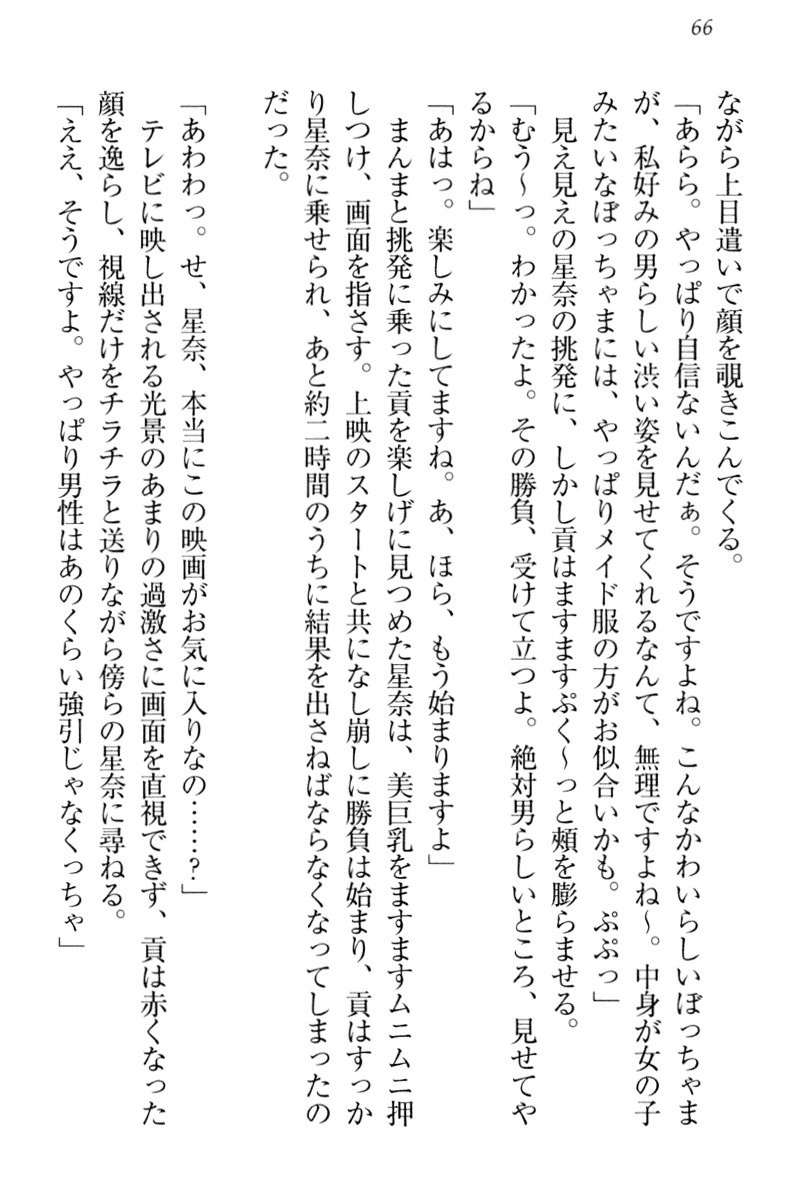 66
ながら上目遣いで顔を覗きこんでくる。
「あらら。やっぱり自信ないんだぁ。そうですよね。こんなかわいらしいぼっちゃま
が、私好みの男らしい渋い姿を見せてくれるなんて、無理ですよね～。中身が女の子
みたいなぼっちゃまには、やっぱりメイド服の方がお似合いかも。ぷぷっ」
見え見えの星奈の挑発に、しかし貢はますますぷく～っと頰を膨らませる。
「むう～っ。わかったよ。その勝負、受けて立つよ。絶対男らしいところ、見せてや
るからね」
「あはっ。楽しみにしてますね。あ、ほら、もう始まりますよ」
まんまと挑発に乗った貢を楽しげに見つめた星奈は、美巨乳をますますムニムニ押
しつけ、画面を指さす。上映のスタートと共になし崩しに勝負は始まり、貢はすっか
り星奈に乗せられ、あと約二時間のうちに結果を出さねばならなくなってしまったの
だった。
「あわわっ。せ、星奈、本当にこの映画がお気に入りなの……？」
テレビに映し出される光景のあまりの過激さに画面を直視できず、貢は赤くなった
顔を逸らし、視線だけをチラチラと送りながら傍らの星奈に尋ねる。
「ええ、そうですよ。やっぱり男性はあのくらい強引じゃなくっちゃ」